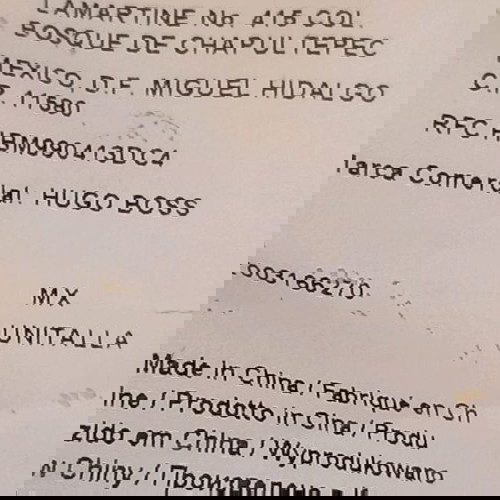 LAMARTINE No. 415 COL.
BOSQUE DE CHAPULTEPEC
MEXICO, D.F. MIGUEL HIDALGO
C.P. 11580
RFC HBM990413DC4
larca Comercial: HUGO BOSS
MX
UNITALLA
Made in China / Fabriqué en Chi
ine / Prodotto in Cina / Produ
zido em China / Wyprodukowano
w Chiny /